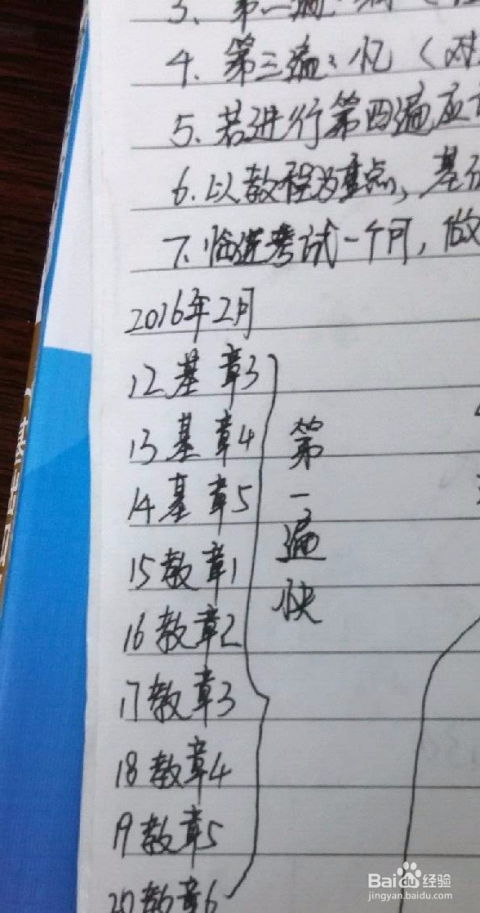 4、第三遍：忆（对
5、若进行第四遍应
6、以教程为重点，基
7、临近考试一个月，做
2016年2月
12基 章3
13基 章4
14基 章5
15教章1
16教章2
17教章3
18教章4
19教章5
20教章6
第一遍快
Baidu经验
jingyan.baidu.com